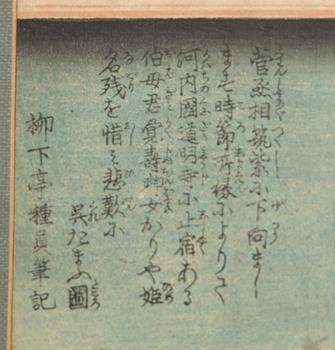 菅丞相筑紫に下向まし
ます時節有縁によりて
河内國道明寺に上宿ある
伯母君覚壽此女かりや姫
名残を惜み悲歎に
呉たまふ圖
柳下亭種員筆記